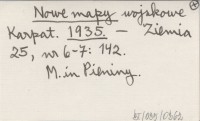 Nowe mapy wojskowe
Karpat. 1935. — Ziemia
25, nr 6-7: 142.
M. in Pieniny.